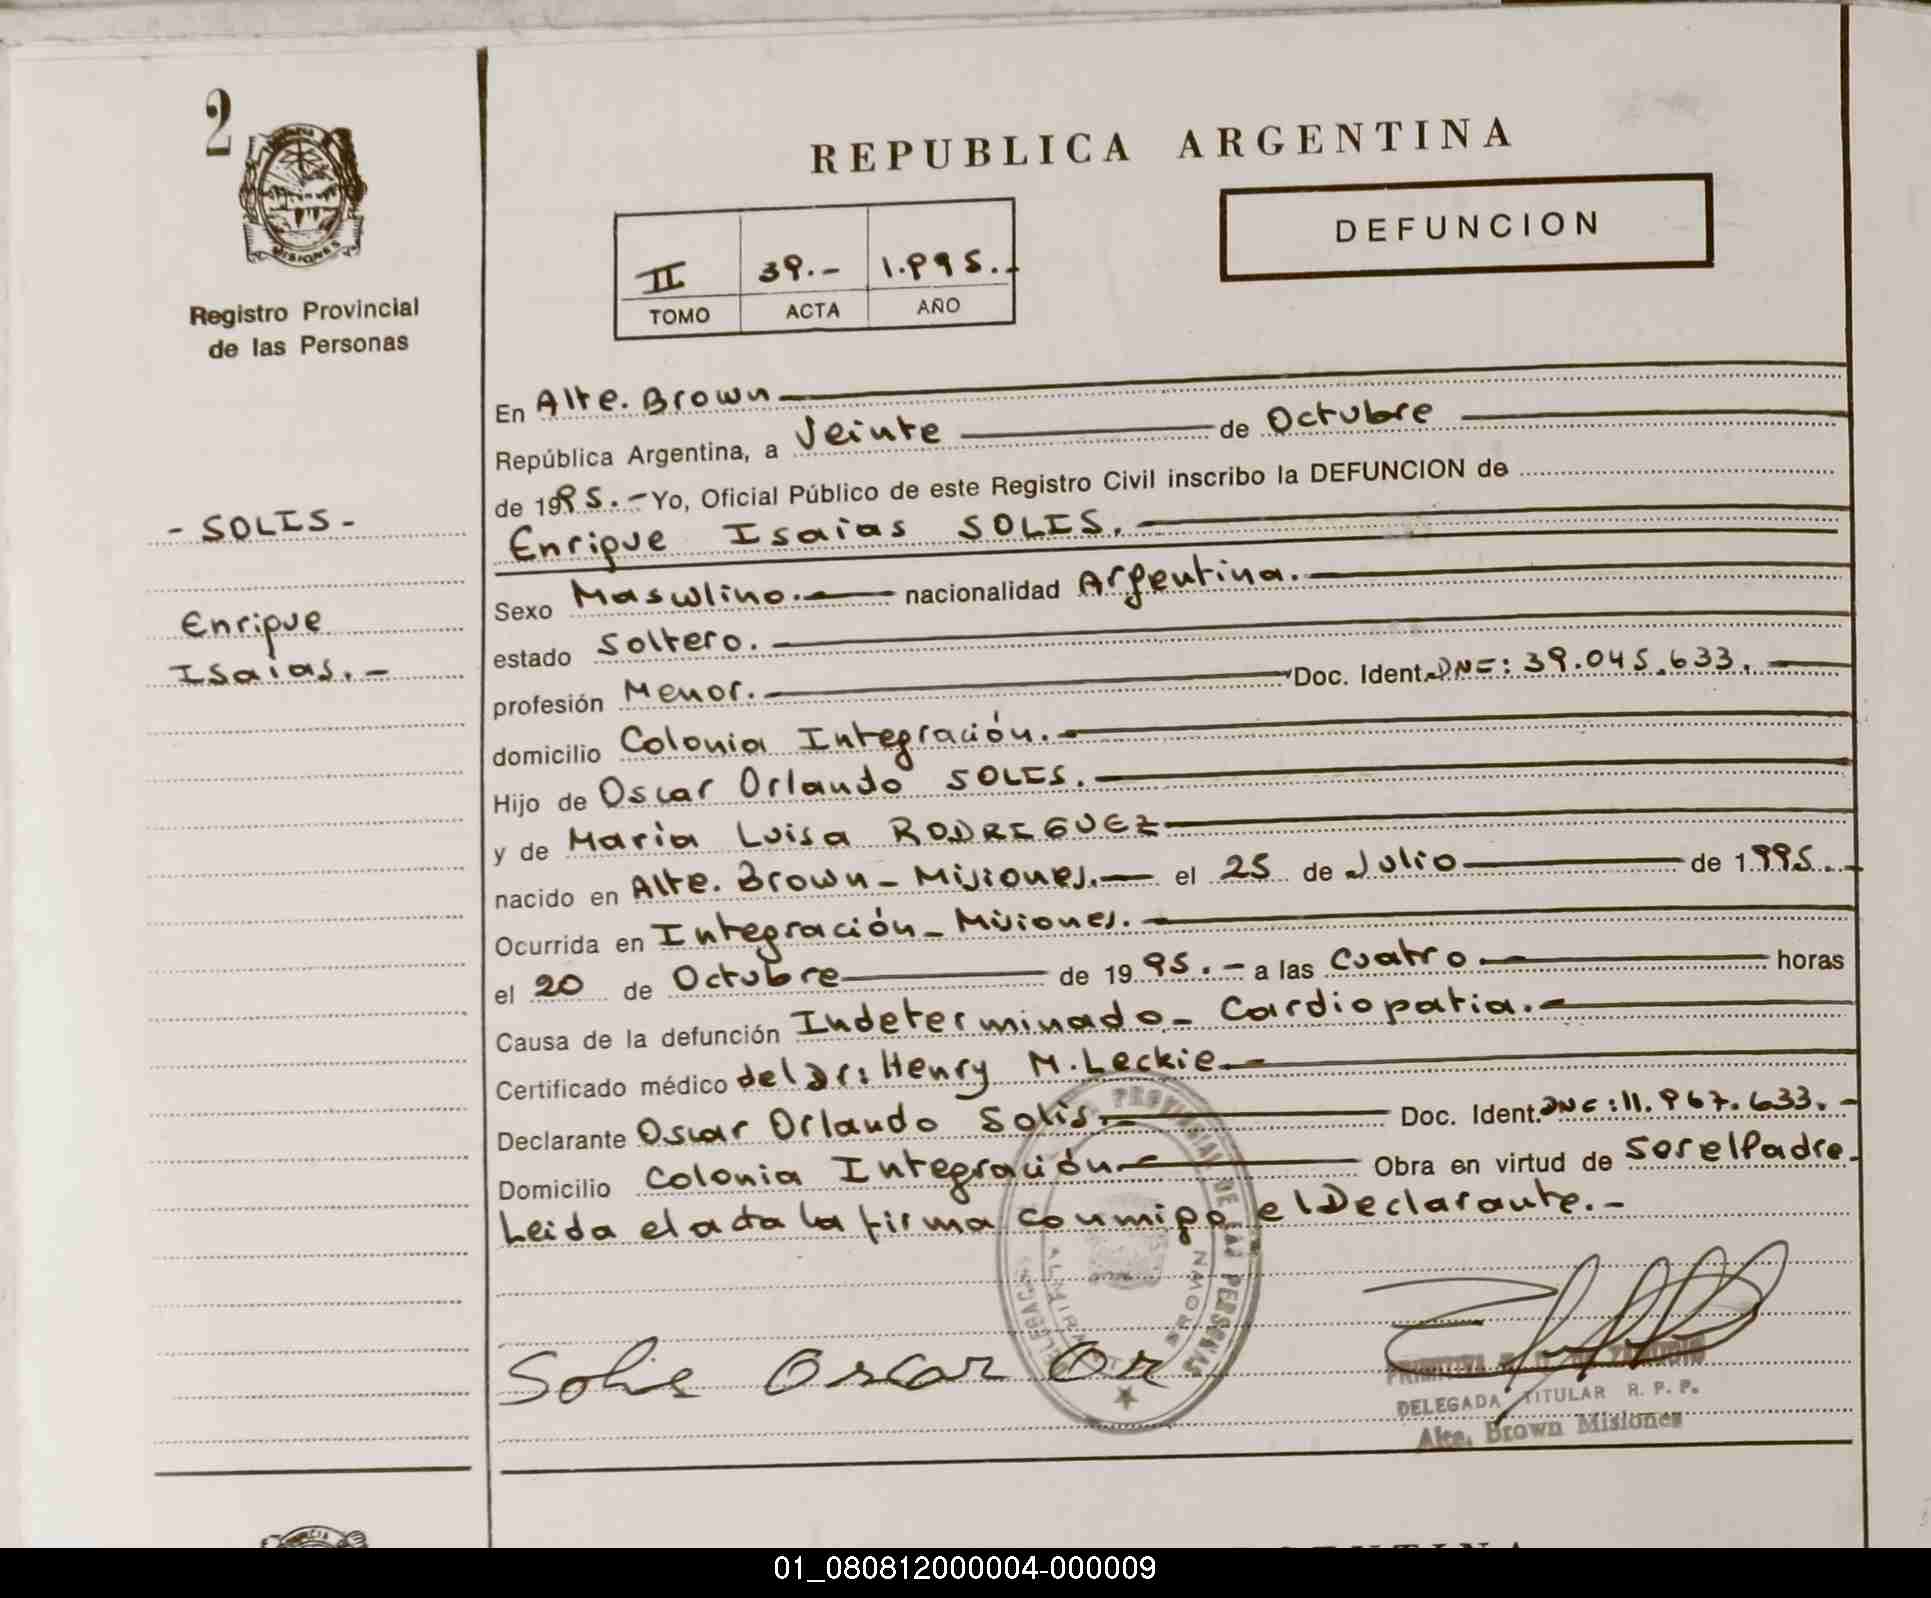 2
MISIONES
Registro Provincial
de las Personas
- SOLIS -
Enrique
Isaias. -
REPUBLICA ARGENTINA
DEFUNCION
II 39.- 1.995.-
TOMO ACTA AÑO
En Alte. Brown
República Argentina, a Veinte de Octubre
de 1995.- Yo, Oficial Público de este Registro Civil inscribo la DEFUNCION de
Enrique Isaias SOLIS.
Sexo Masculino. nacionalidad Argentina.
estado Soltero.
profesión Menor. Doc. Ident. DNI: 39.045.633.
domicilio Colonia Integración.
Hijo de Oscar Orlando SOLIS.
y de Maria Luisa RODRIGUEZ
nacido en Alte. Brown - Misiones. el 25 de Julio de 1.995.
Ocurrida en Integración - Misiones.
el 20 de Octubre de 1995.- a las Cuatro. horas
Causa de la defunción Indeterminado - Cardiopatia.
Certificado médico del Dr: Henry M. Leckie
Declarante Oscar Orlando Solis. Doc. Ident. DNI: 11.967.633.-
Domicilio Colonia Integración Obra en virtud de Ser el Padre.
Leida el acta la firma conmigo el Declarante. -
PROVINCIAL DE LAS PERSONAS
ALMIRANTE BROWN
Solis Oscar Or
PRIMITIVA
DELEGADA TITULAR R. P. P.
Alte. Brown Misiones
01_080812000004-000009